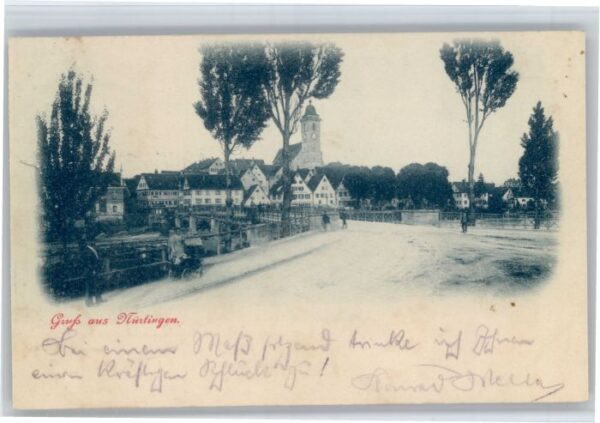 Gruß aus Nürtingen.
Bei einem Maß sitzend trinke ich Ihnen
einen kräftigen Schluck zu!